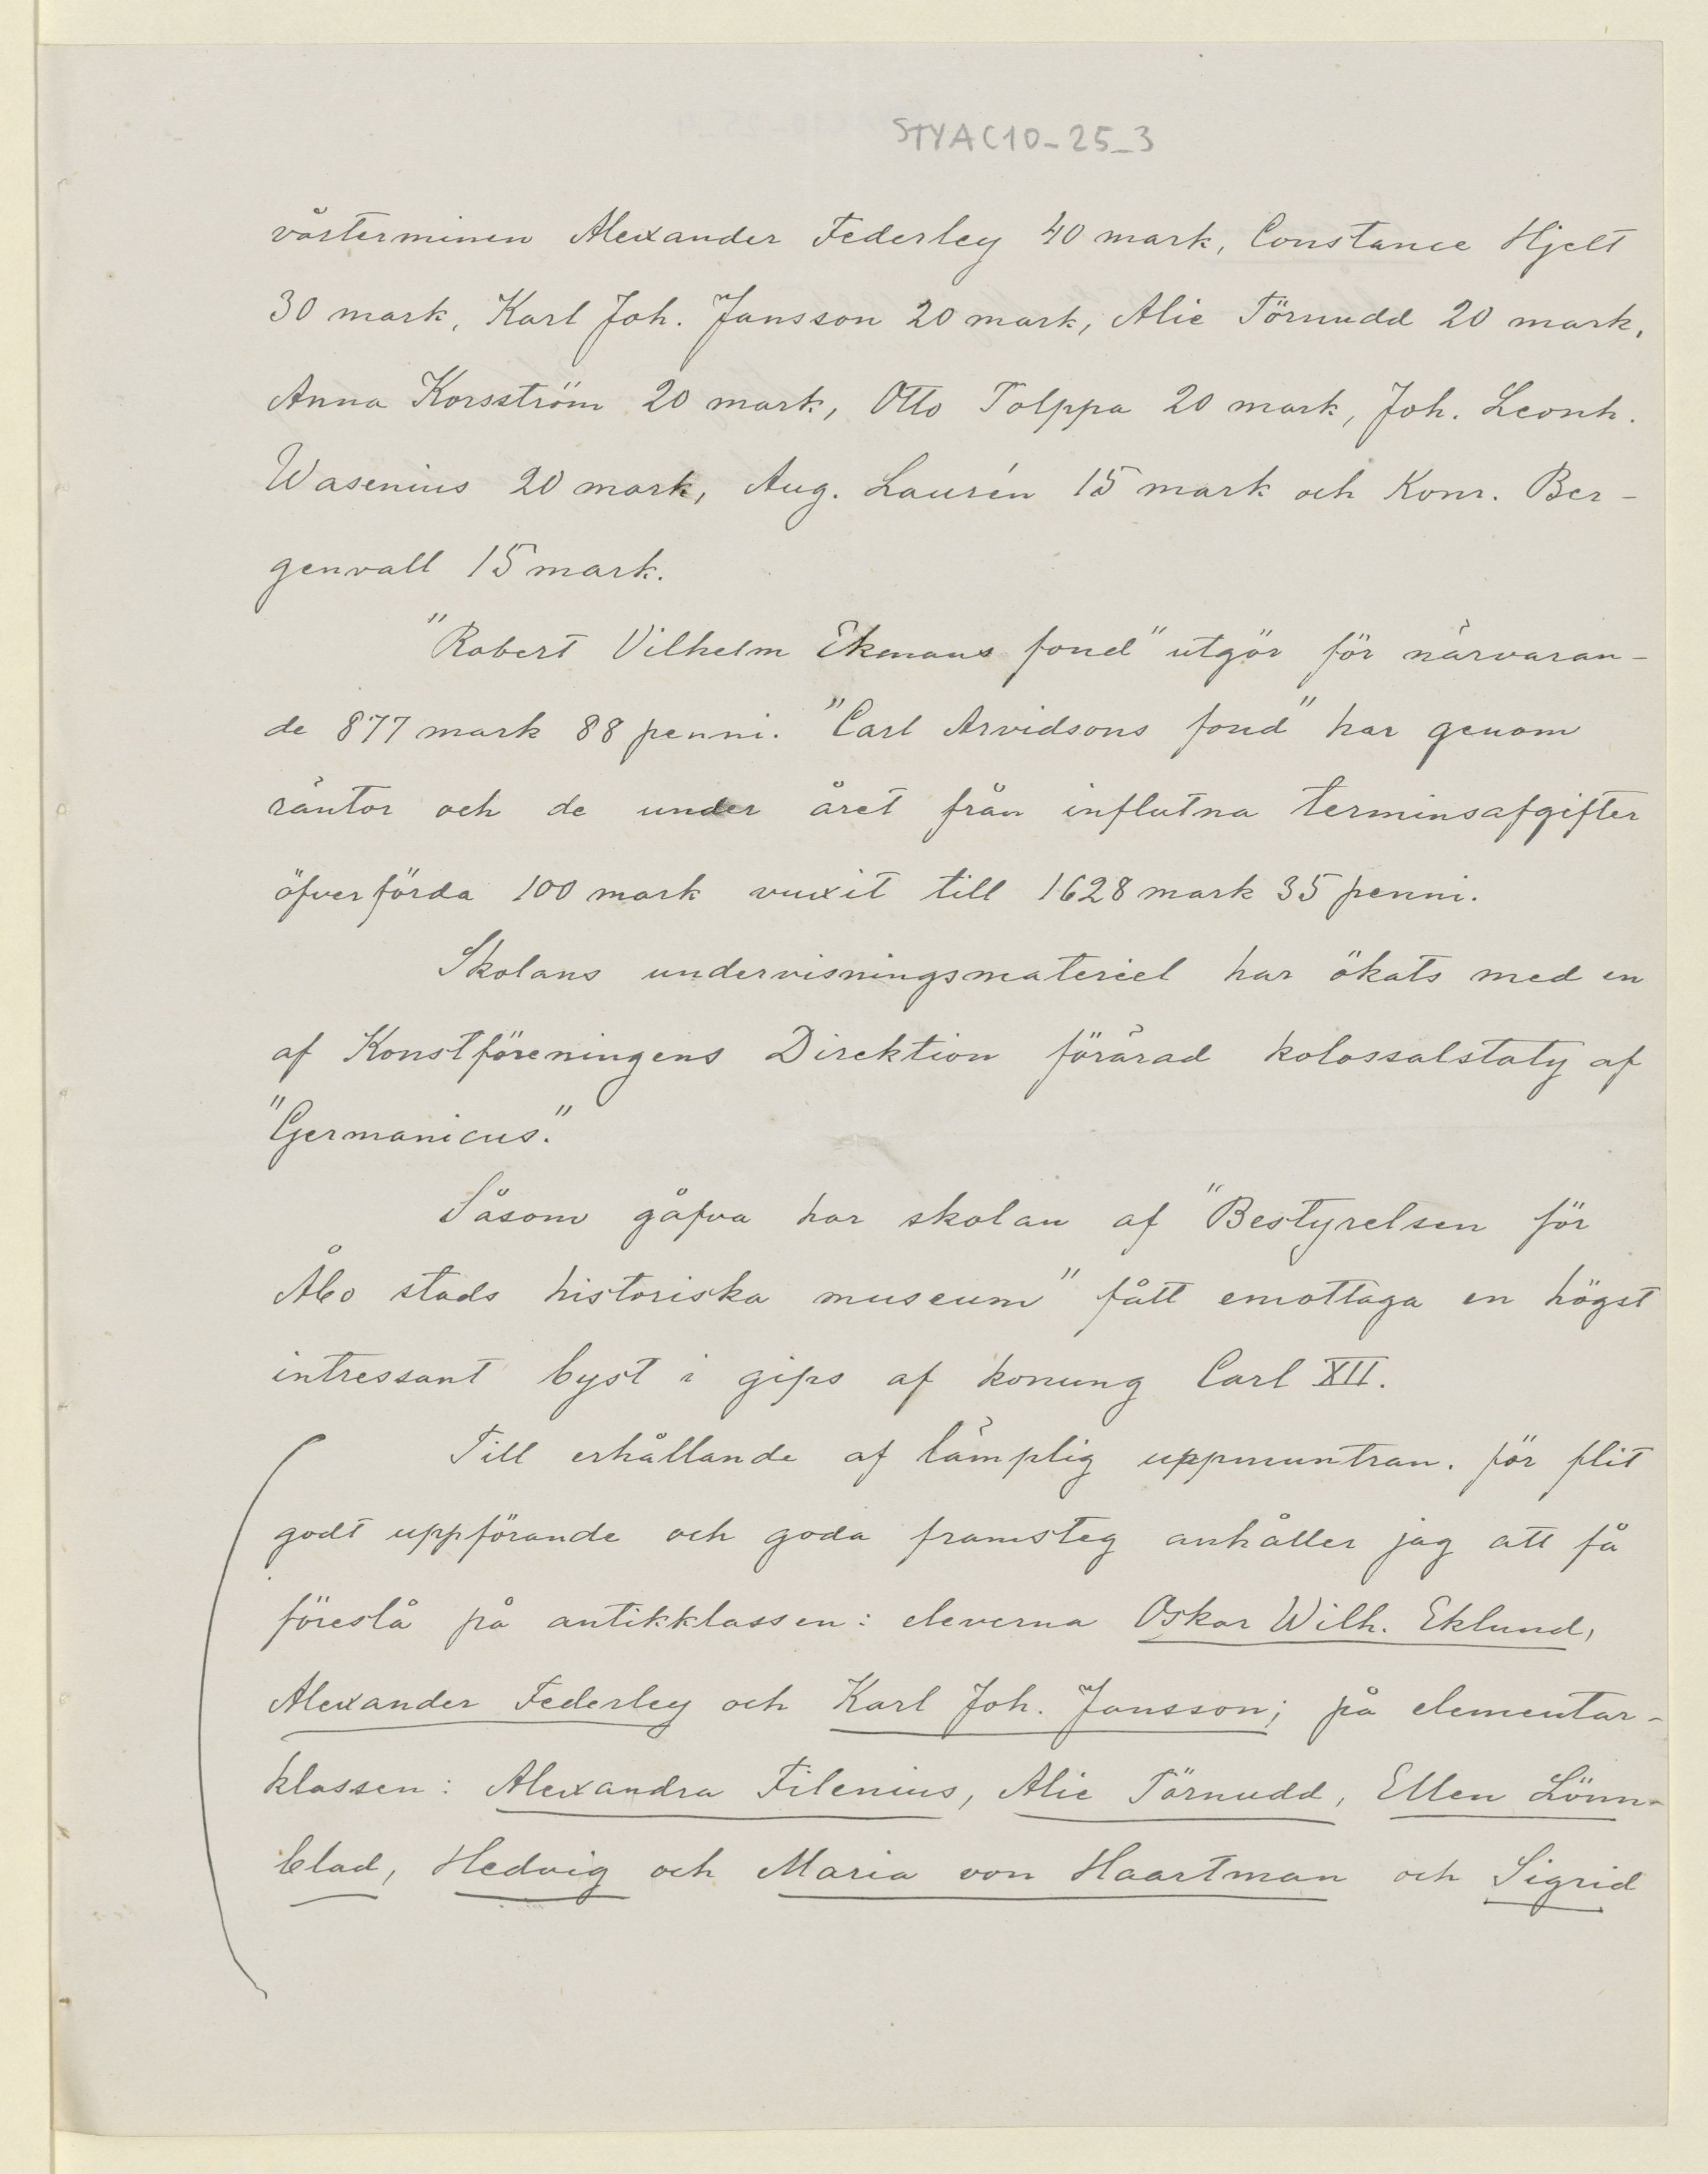 STYAC10-25_3
vårterminen Alexander Federley 40 mark, Constance Hjelt
30 mark, Karl Joh. Jansson 20 mark, Alie Törnudd 20 mark,
Anna Korsström 20 mark, Otto Tolppa 20 mark, Joh. Leonh.
Wasenius 20 mark, Aug. Laurén 15 mark och Konr. Ber-
genvall 15 mark.
"Robert Vilhelm Ekmans fond" utgör för närvaran-
de 877 mark 88 penni. "Carl Arvidsons fond" har genom
räntor och de under året från influtna terminsafgifter
öfverförda 100 mark vuxit till 1628 mark 35 penni.
Skolans undervisningsmateriel har ökats med en
af Konstföreningens Direktion förärad kolossalstaty af
"Germanicus".
Såsom gåfva har skolan af "Bestyrelsen för
Åbo stads historiska museum" fått emottaga en högst
intressant byst i gips af konung Carl XII.
Till erhållande af lämplig uppmuntran. för flit
godt uppförande och goda framsteg anhåller jag att få
föreslå på antikklassen: eleverna Oskar Wilh. Eklund,
Alexander Federley och Karl Joh. Jansson; på elementar-
klassen: Alexandra Filenius, Alie Törnudd, Ellen Lönn-
blad, Hedvig och Maria von Haartman och Sigrid